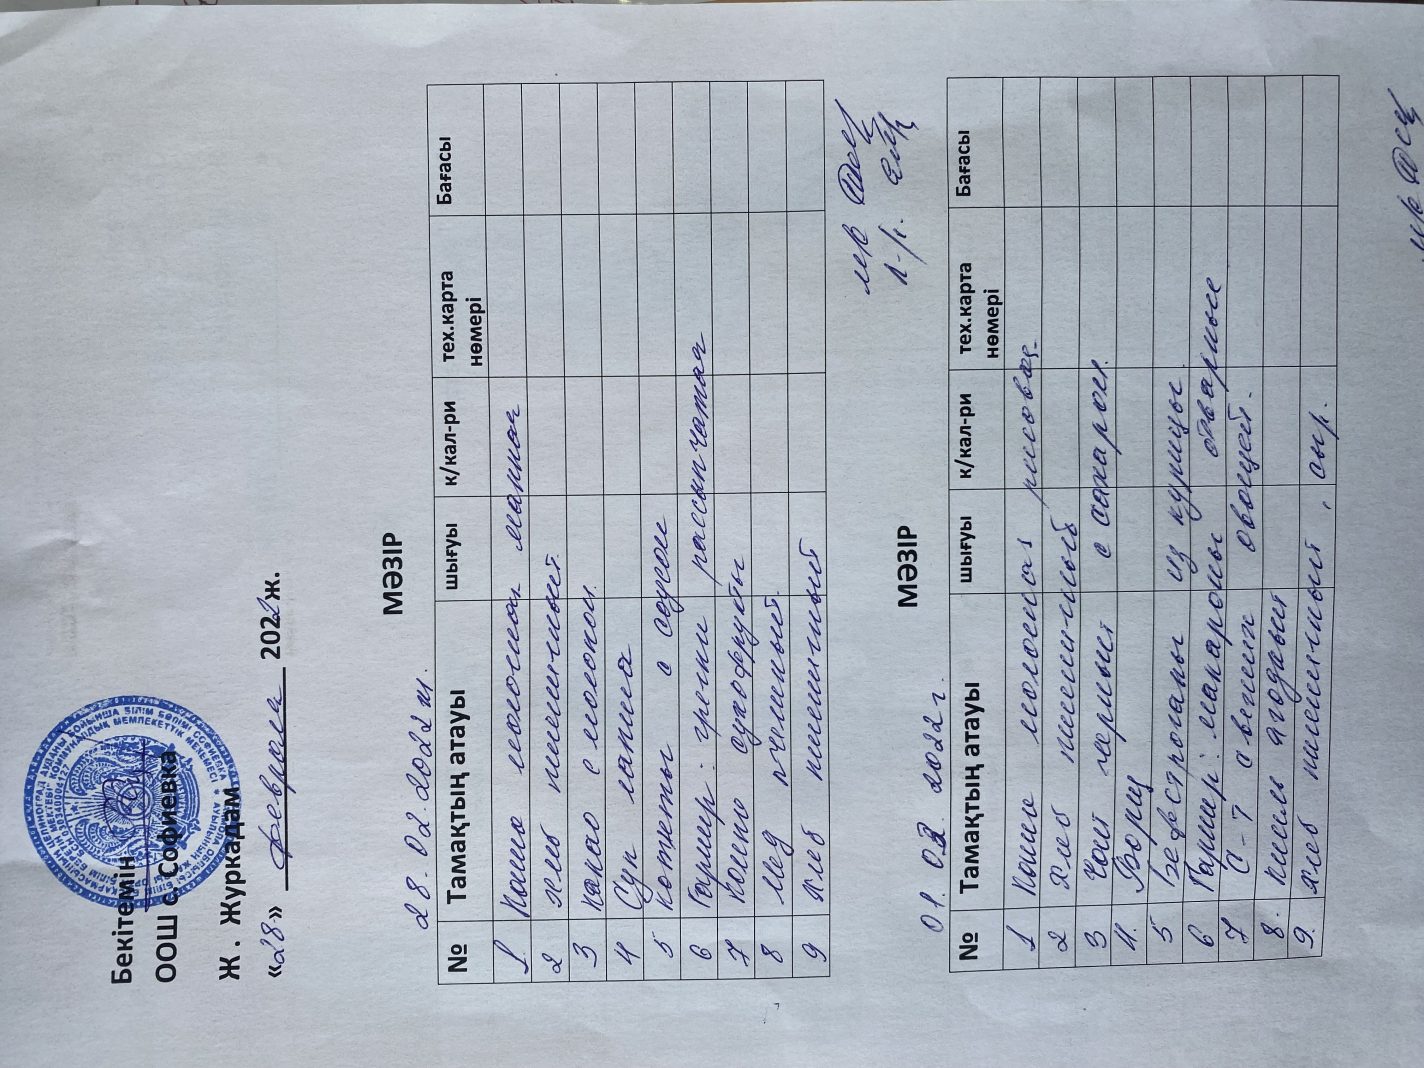 Бекітемін
ООШ с. Софиевка
Ж . Журкадам
«28» февраля 2022 ж.
МӘЗІР
28. 02. 2022
№ Тамақтың атауы шығуы к/кал-ри тех.карта нөмері Бағасы
1 Каша молочная манная
2 хлеб пшеничный
3 какао с молоком
4 Суп лапша
5 котлеты с соусом
6 Гарнир: гречка рассыпчатая
7 Компо сухофрукты
8 мёд пчелиный
9 хлеб пшеничный
МӘЗІР
01. 03. 2022 г.
№ Тамақтың атауы шығуы к/кал-ри тех.карта нөмері Бағасы
1 Каша молочная рисовая
2 Хлеб пшеничный
3 Чай черный с сахаром
4. Борщ
5 Бефстроганы из курицы
6 Гарнир: макароны отварные
7 С-т свежих овощей.
8. кисель ягодный
9. хлеб пшеничный, сыр.